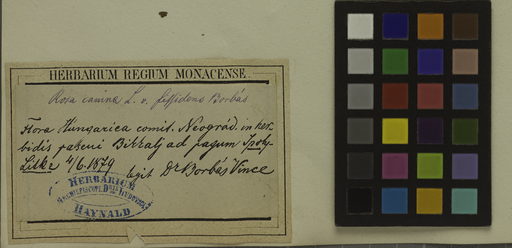 HERBARIUM REGIUM MONACENSE.
Rosa canina L. v. fissidens Borbás
Flora Hungarica comit. Neográd. in her-
bidis pascui ad pagum Ipoly-
Litke 4/6. 1879 legit Dr Borbás Vince
HERBARIUM
HAYNALD